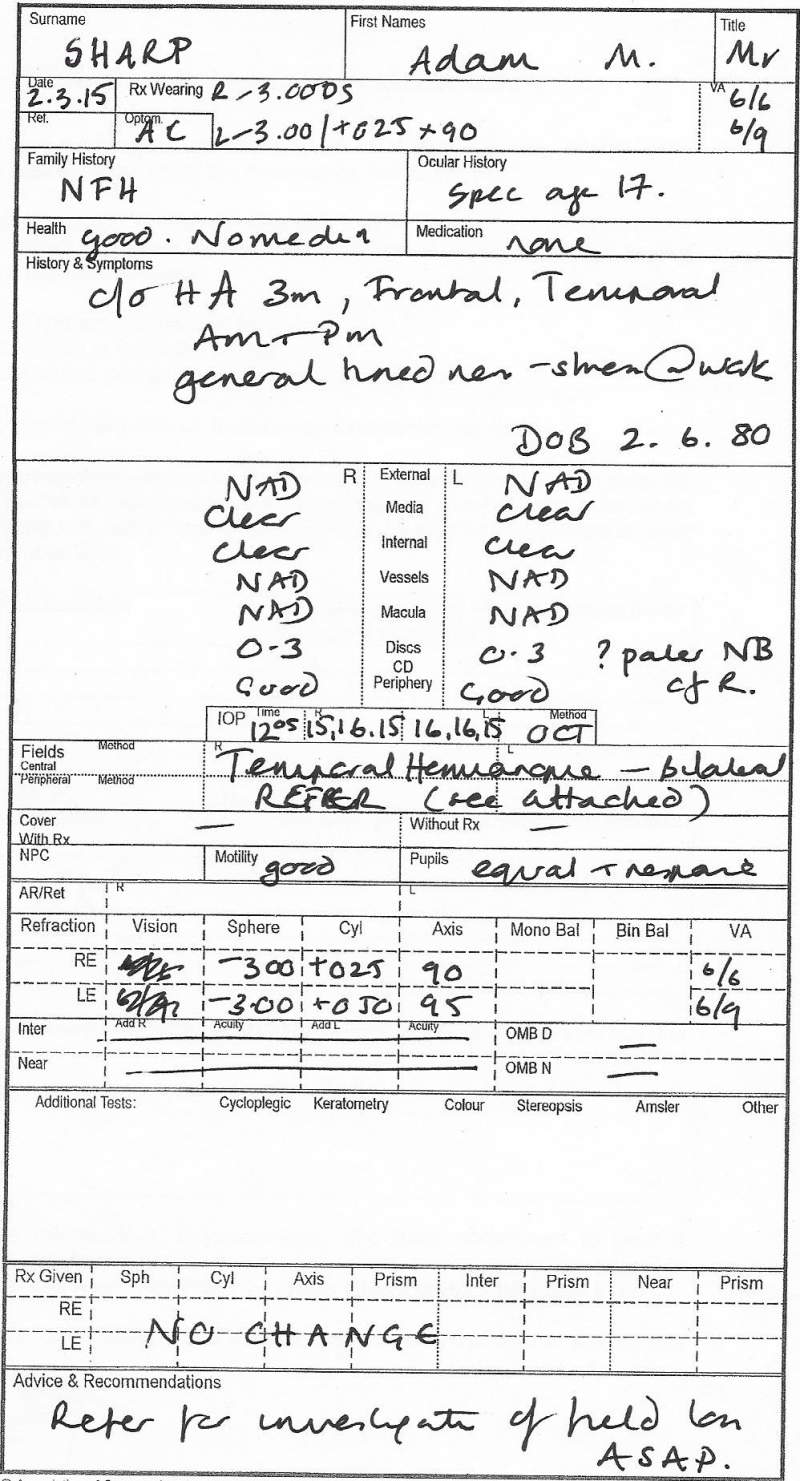 Surname First Names Title
SHARP Adam M. Mr
Date Rx Wearing R -3.00DS VA 6/6
2.3.15
Ref. Optom. L -3.00/+025 x90 6/9
AC
Family History Ocular History
NFH Spec age 17.
Health good. Medication none
History & Symptoms
c/o HA 3m, Frontal, Temporal
Am + Pm
general @ work
DOB 2. 6. 80
NAD R External L NAD
Clear Media Clear
Clear Internal Clear
NAD Vessels NAD
NAD Macula NAD
0-3 Discs 0.3 ? paler NB
CD cf R.
Good Periphery Good
IOP Time 12 05 R 15,16.15 L 16,16,15 Method OCT
Fields Method R L
Central Temporal - bilateral
Peripheral Method REFER (see attached)
Cover — Without Rx —
With Rx
NPC Motility good Pupils equal +
AR/Ret R L
Refraction Vision Sphere Cyl Axis Mono Bal Bin Bal VA
RE -300 +025 90 6/6
LE -3.00 +050 95 6/9
Inter Add R Acuity Add L Acuity OMB D —
Near OMB N —
Additional Tests: Cycloplegic Keratometry Colour Stereopsis Amsler Other
Rx Given Sph Cyl Axis Prism Inter Prism Near Prism
RE
LE NO CHANGE
Advice & Recommendations
Refer for of field loss
ASAP.